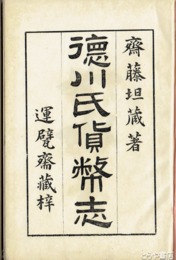 齋藤坦藏著
德川氏貨幣志
運甓齋藏梓